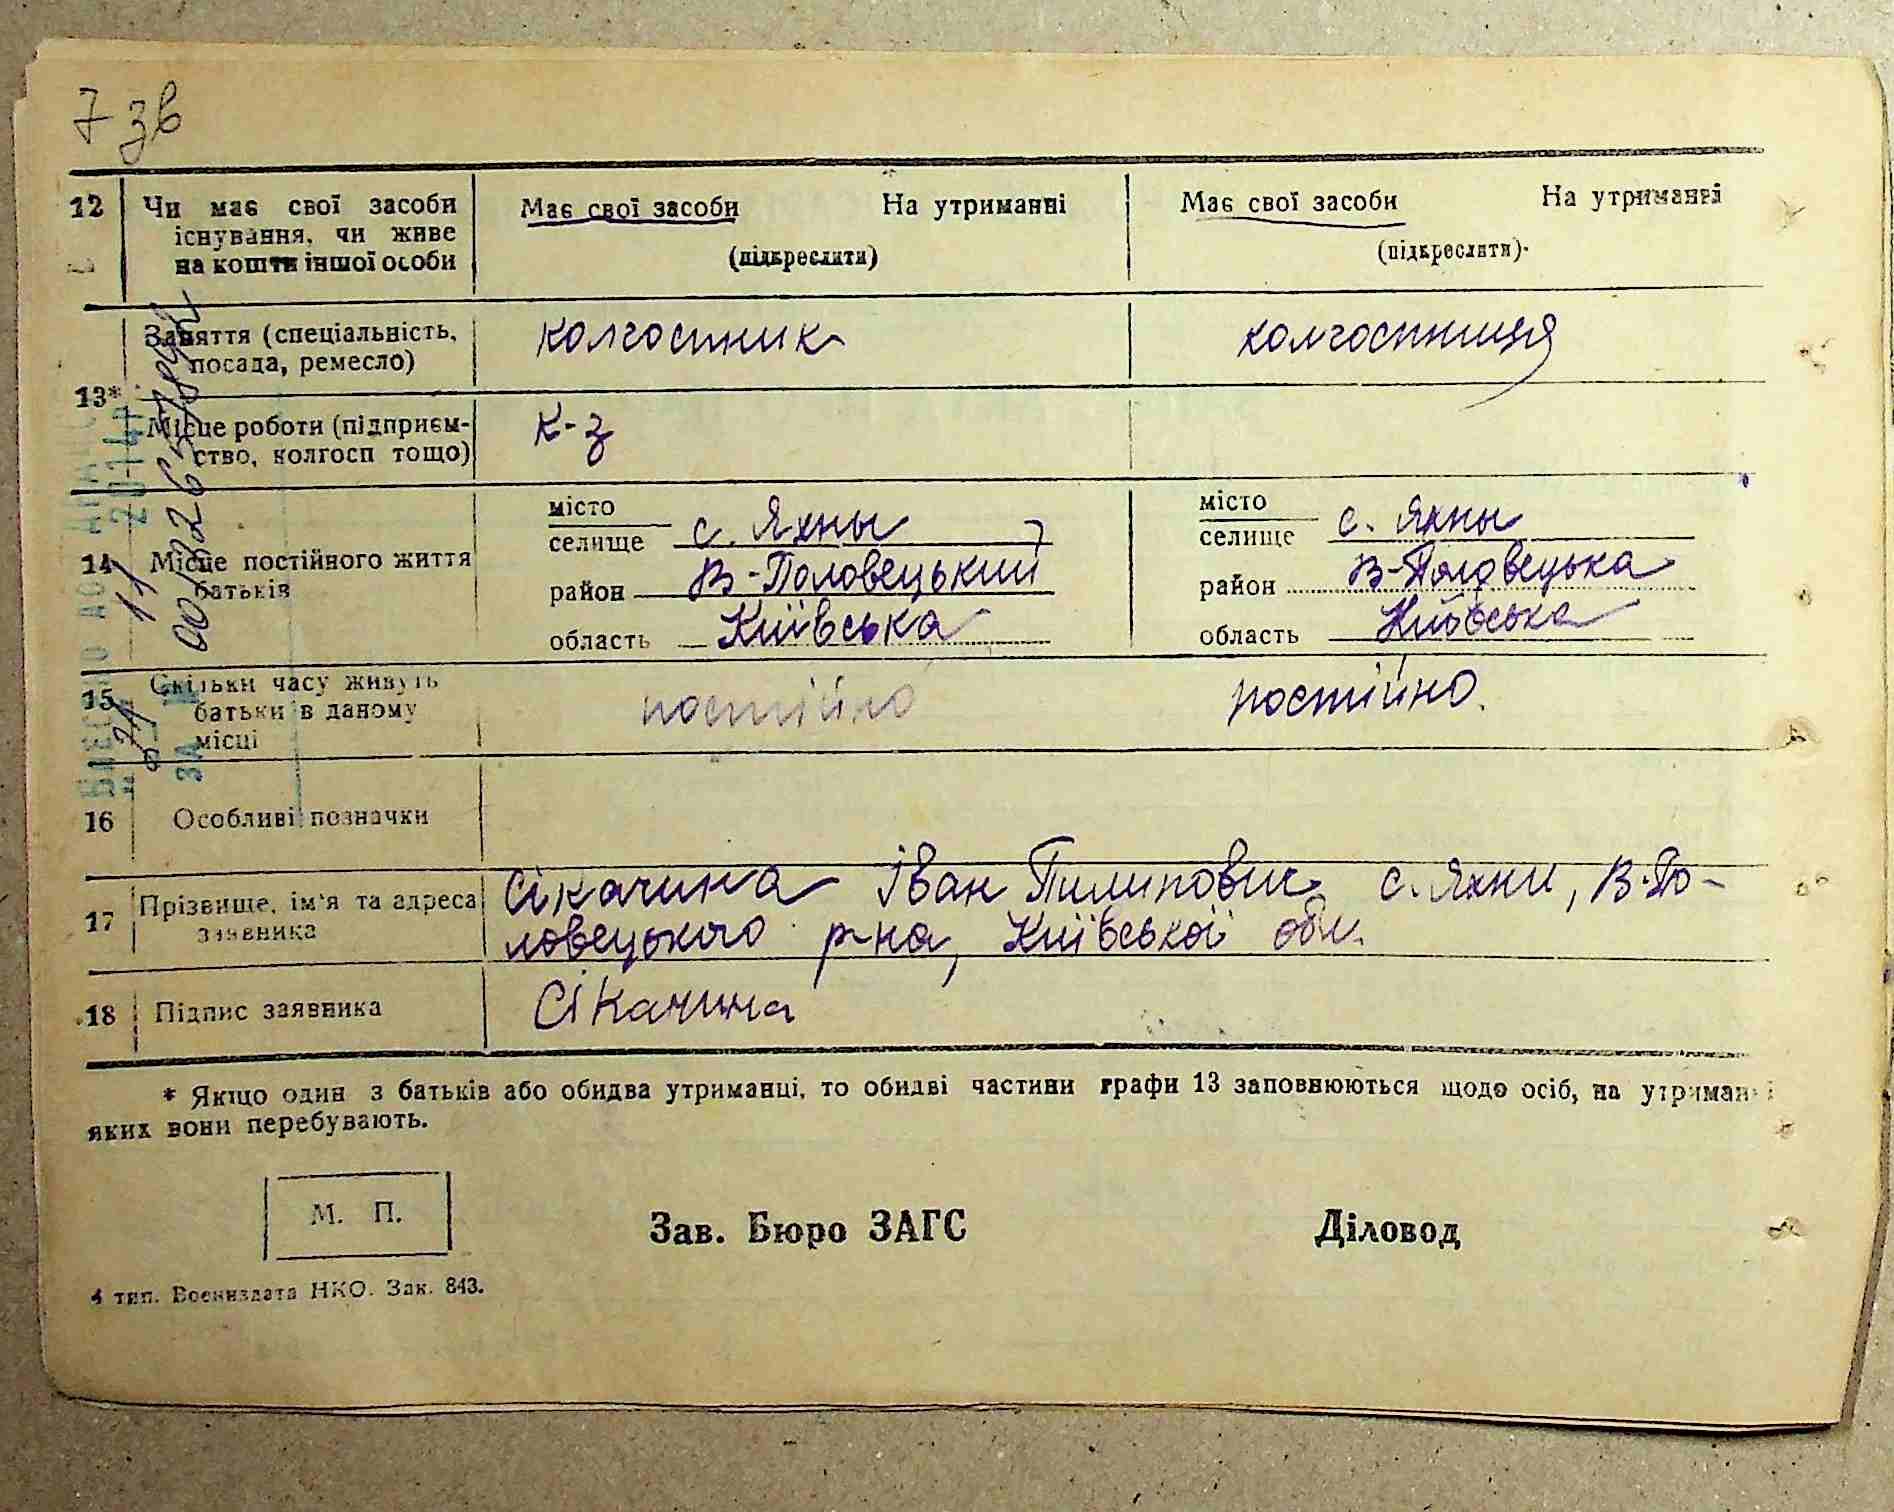 7 зв
12 Чи має свої засоби Має свої засоби На утриманні Має свої засоби На утриманні
існування, чи живе (підкреслити) (підкреслити)
на кошти іншої особи
Заняття (спеціальність, колгоспник колгоспниця
посада, ремесло)
13*
Місце роботи (підприєм- к-з
ство, колгосп тощо)
місто місто
селище с. Яхны селище с. Яхны
14 Місце постійного життя район В-Половецький район В-Половецька
батьків
область Київська область Київська
15 Скільки часу живуть постійно постійно.
батьки в даному
місці
16 Особливі позначки
17 Прізвище, ім'я та адреса Сікачина Іван Пилипович с. Яхни, В-По-
заявника ловецького р-на, Київської обл.
18 Підпис заявника Сікачина
* Якщо один з батьків або обидва утриманці, то обидві частини графи 13 заповнюються щодо осіб, на утриманні
яких вони перебувають.
М. П. Зав. Бюро ЗАГС Діловод
4 тип. Воениздата НКО. Зак. 843.